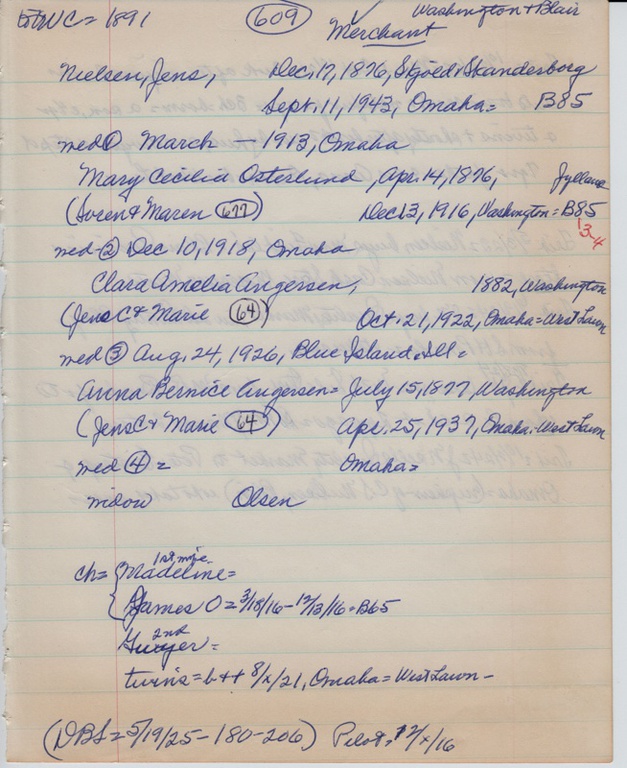 to WC = 1891 609 ✓ Washington + Blair
Merchant
Nielsen, Jens, Dec. 17, 1876, Skanderborg
Sept. 11, 1943, Omaha = B85
med ① March - 1913, Omaha
Mary Cecilia Osterlund, Apr. 14, 1876, Jylland
(Soren & Maren 677) Dec 13, 1916, Washington = B85
13-4
med - ② Dec 10, 1918, Omaha
Clara Amelia Angersen, 1882, Washington
(Jens C & Marie 64) Oct. 21, 1922, Omaha = West Lawn
med ③ Aug. 24, 1926, Blue Island, Ill =
Anna Bernice Angersen = July 15, 1877, Washington
(Jens C & Marie 64) Apr. 25, 1937, Omaha = West Lawn
med ④ = Omaha =
widow Olsen
1st wife
ch = { Madeline =
James O = 3/18/16 - 12/13/16 = B65
2nd
=
twins = b + + 8/x/21, Omaha = West Lawn -
(DBS = 5/19/25 - 180-206) Pilot = 12/x/16